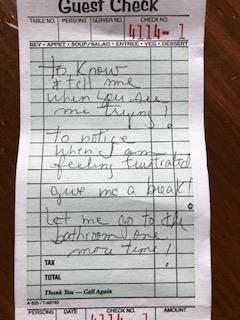 Guest Check
TABLE NO. PERSONS SERVER NO. CHECK NO.
4114-1
BEV • APPET • SOUP/SALAD • ENTREE • VEG • DESSERT
to know
& tell me
when you see
me trying!
to notice
when I am
feeling frustrated
give me a break!
Let me go to the
bathroom one
more time!
TAX
TOTAL
Thank You — Call Again
A-525 / T-40740
PERSONS DATE CHECK NO. AMOUNT
4114-1